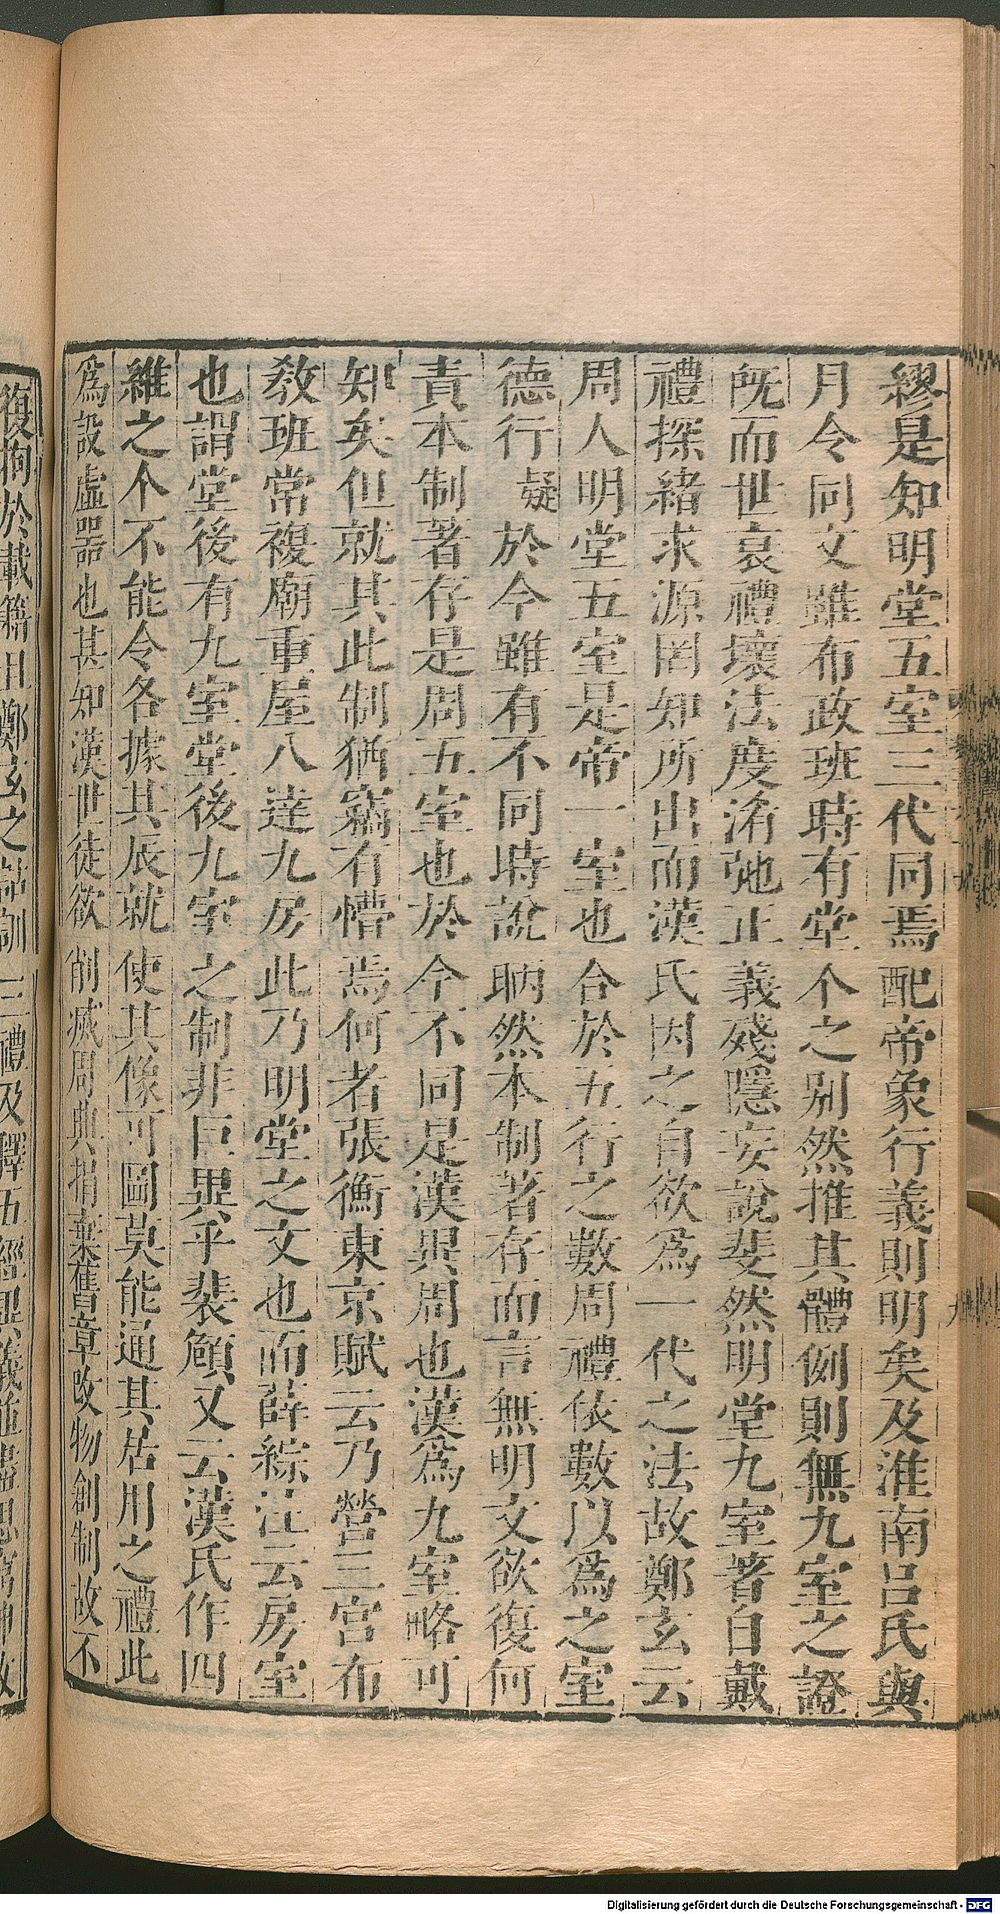 繆是知明堂五室三代同焉配帝象行義則明矣及淮南呂氏與
月令同文雖布政班時有堂个之别然推其體例則無九室之證
旣而世衰禮壞法度淆弛正義殘隱妄說斐然明堂九室著自戴
禮探緒求源罔知所出而漢氏因之自欲爲一代之法故鄭玄云
周人明堂五室是帝一室也合於五行之數周禮依數以爲之室
德行疑於今雖有不同時說昞然本制著存而言無明文欲復何
責本制著存是周五室也於今不同是漢異周也漢爲九室略可
知矣但就其此制猶竊有懵焉何者張衡東京賦云乃營三宮布
敎班常複廟重屋八達九房此乃明堂之文也而薛綜注云房室
也謂堂後有九室堂後九室之制非巨異乎裴頠又云漢氏作四
維之个不能令各據其辰就使其像可圖莫能通其居用之禮此
爲設虛器也甚知漢世徒欲削滅周典捐棄舊章改物創制故不
復拘於載籍且鄭玄之詁訓三禮及釋五經異義並盡思窮神故
Digitalisierung gefördert durch die Deutsche Forschungsgemeinschaft - DFG